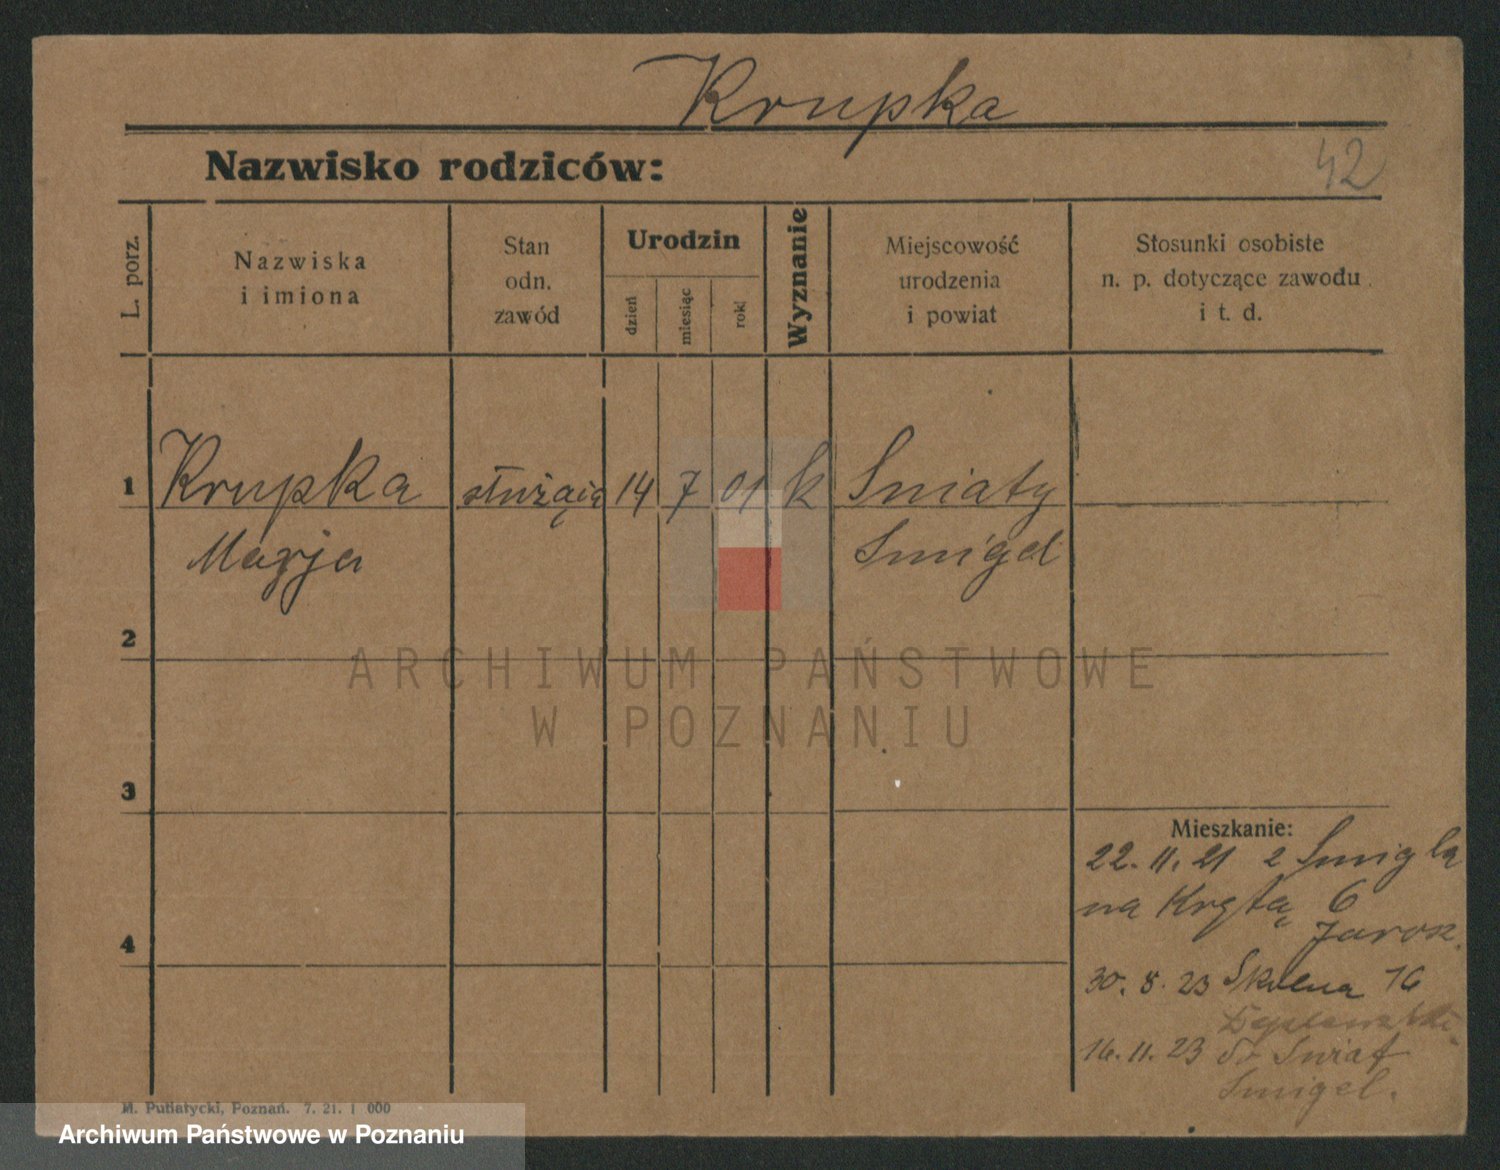 Krupka
Nazwisko rodziców:
42
L. porz.
Nazwiska
i imiona
Stan
odn.
zawód
Urodzin
dzień
miesiąc
rok
Wyznanie
Miejscowość
urodzenia
i powiat
Stosunki osobiste
n. p. dotyczące zawodu
i t. d.
1 Krupka służąca 14 7 01 k Sniaty
Marja Smigel
2
ARCHIWUM PAŃSTWOWE
W POZNANIU
3
Mieszkanie:
22. 11. 21 z Smigla
na Krętą 6
Jarosz.
4
30. 8. 23 Skolna 16
16. 11. 23 do Sniat
Smigel.
M. Putiatycki, Poznań. 7. 21. 1 000
Archiwum Państwowe w Poznaniu